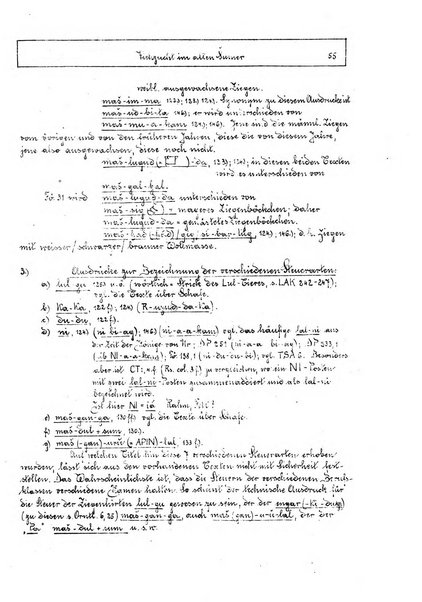 Viehzucht im alten Šumer 55
weibl. ausgewachsene Ziegen.
maš-im-ma 123); 124). Synonym zu diesem Ausdrucke ist
maš-ud-bi-ta 146); er wird unterschieden von
maš-mu-a-kam 123); 124). Jene sind die männl. Ziegen
vom vorigen und von den früheren Jahren, diese die von diesem Jahre,
jene also ausgewachsen, diese noch nicht.
maš-lugud-da, 123), 124); in diesen beiden Texten
wird es unterschieden von
maš-gal-gal.
Fö. 31 wird maš-lugud-da unterschieden von
maš-sig = mageres Ziegenböckchen; daher
maš-lugud-da = gemästetes Ziegenböckchen.
maš-bad /gig, si-bar-lig, 124), 146); d. h. Ziegen
mit weisser/schwarzer/brauner Wollmasse.
3.) Ausdrücke zur Bezeichnung der verschiedenen Steuerarten:
a) lul-gu 125) u. ö. (wörtlich = Strick des Lul-Tieres, s. LAK 242-247);
vgl. die Texte über Schafe.
b) ka-ka, 122 f.), 124) (R-uzud-da-ka).
c) du-du, 122 f.),
d) ni, 124) (ni bi-ag), 146) (ni-a-a-kam) vgl. das häufige lal-ni aus
der Zeit der Könige von Ur; DP 251 (ni-a-a bi-ag); DP 333,
(ib NI-a-a-kam); Fö 138, (ni-du-du-bi); vgl. TSA 6. Besonders
aber ist CT (Rs. col. 3 f.) zu vergleichen, wo ein NI-Posten
mit zwei lal-ni-Posten zusammenaddiert und als lal-ni
bezeichnet wird.
Ist hier NI = iá Rahm, Fett?
e) maš-gan-ga, 130 ff.) vgl. die Texte über Schafe.
f) maš-dul + sum, 130).
g) maš (-gan)-uru (= APIN)-lal, 133 f.).
Auf welchen Titel hin diese 7 verschiedenen Steuerarten erhoben
wurden, lässt sich aus den vorhandenen Texten nicht mit Sicherheit fest-
stellen. Das Wahrscheinlichste ist, dass die Steuern der verschiedenen Berufs-
klassen verschiedene Namen hatten. So scheint der technische Ausdruck für
die Steuer der Ziegenhirten lul-gu gewesen zu sein, der der engar (-ki-dug)
(zu diesen s. Orntl. 6, 25) maš-gan-ga, auch maš (-gan)-uru-lal, der der
"Pa" maš-dul + sum u. s. w.